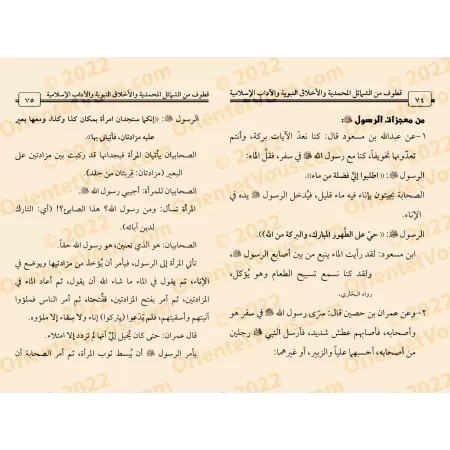 قطوف من الشمائل المحمدية والأخلاق النبوية والآداب الإسلامية
٧٤
من معجزات الرسول ﷺ:
١–عن عبدالله بن مسعود قال: كنا نعدّ الآيات بركة، وأنتم
تعدّونها تخويفاً، كنا مع رسول الله ﷺ في سفر، فقلَّ الماء:
الرسول ﷺ: «اطلبوا لِي فَضلة من ماء».
الصحابة يجيئون بإناء فيه ماء قليل، فيُدخل الرسول ﷺ يده في
الإناء.
الرسول ﷺ: «حيّ على الطَّهور المبارك، والبركة من الله)).
ابن مسعود: لقد رأيت الماء ينبع من بين أصابع الرسول ﷺ،
ولقد كنا نسمع تسبيح الطعام وهو يُؤكل،
رواه البخاري.
٢–وعن عمران بن حصين قال: سرّى رسول الله ﷺ في سفر هو
وأصحابه، فأصابهم عطش شديد، فأرسل النبي ﷺ رجلين
من أصحابه، أحسبهما علياً والزبير، أو غيرهما:
قطوف من الشمائل المحمدية والأخلاق النبوية والآداب الإسلامية
٧٥
الرسول ﷺ: «إنكما ستجدان امرأة بمكان كذا وكذا، ومعها بعير
عليه مزادتان، فأتياني بها».
الصحابيان يأتيان المرأة فيجدانها قد ركبت بين مزادتين على
البعير (مزادتان: قربتان من جلد).
الصحابيان للمرأة: أجيبي رسول الله ﷺ.
المرأة تسأل: ومن رسول الله؟ هذا الصابئ؟! (أي: التارك
لدين آبائه).
الصحابيان: هو الذي تعنين، هو رسول الله حقاً.
تأتي المرأة إلى الرسول، فيأمر أن يُؤخذ من مزادتيها ويوضع في
الإناء، ثم يقول في الماء ما شاء الله أن يقول، ثم أعاد الماء في
المزادتين، ثم أمر بفتح المزادتين، ففُتحتا، ثم أمر الناس فملؤوا
آنيتهم وأسقيتهم، فلم يَدَعوا (يتركوا) إناء ولا سِقاء إلا ملؤوه.
قال عمران: حتى كان يُخيل إليَّ أنها لم تزدد إلا امتلاء.
يأمر الرسول ﷺ أن يُبسط ثوب المرأة، ثم أمر الصحابة أن
© 2022
OrientetVous.com